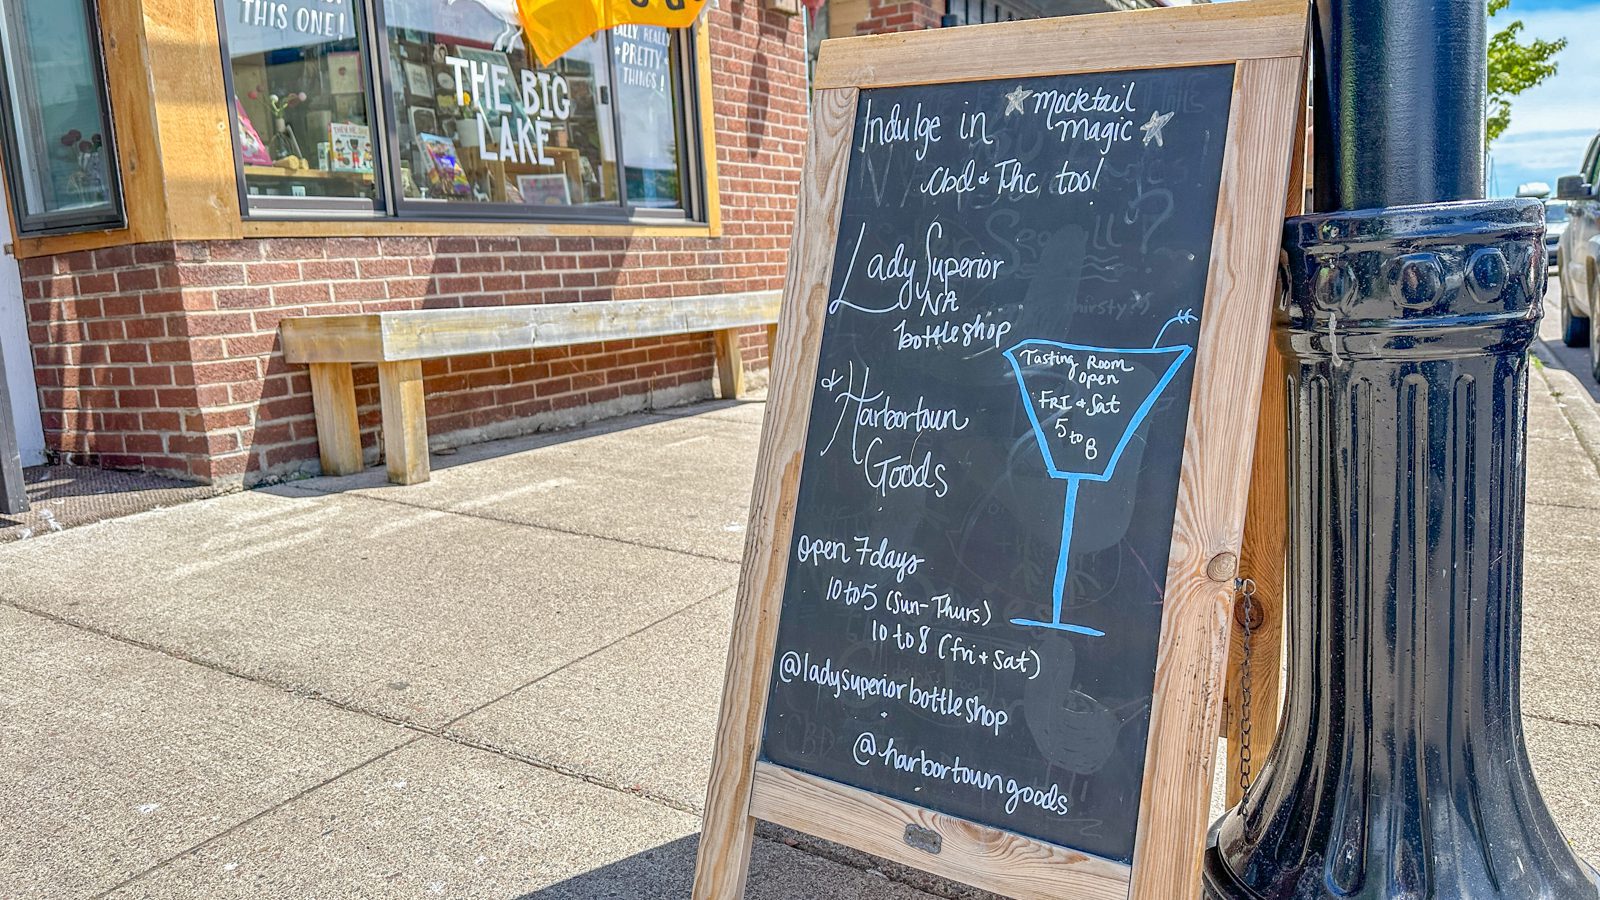 THIS ONE!
THE BIG
LAKE
REALLY
PRETTY
THINGS!
Indulge in mocktail
magic
cbd & Thc too!
Lady Superior
NA
bottleshop
& Harbortown
Goods
Tasting Room
open
FRI & Sat
5 to
8
open 7 days
10 to 5 (Sun-Thurs)
10 to 8 (fri + sat)
@ladysuperiorbottleshop
@harbortowngoods